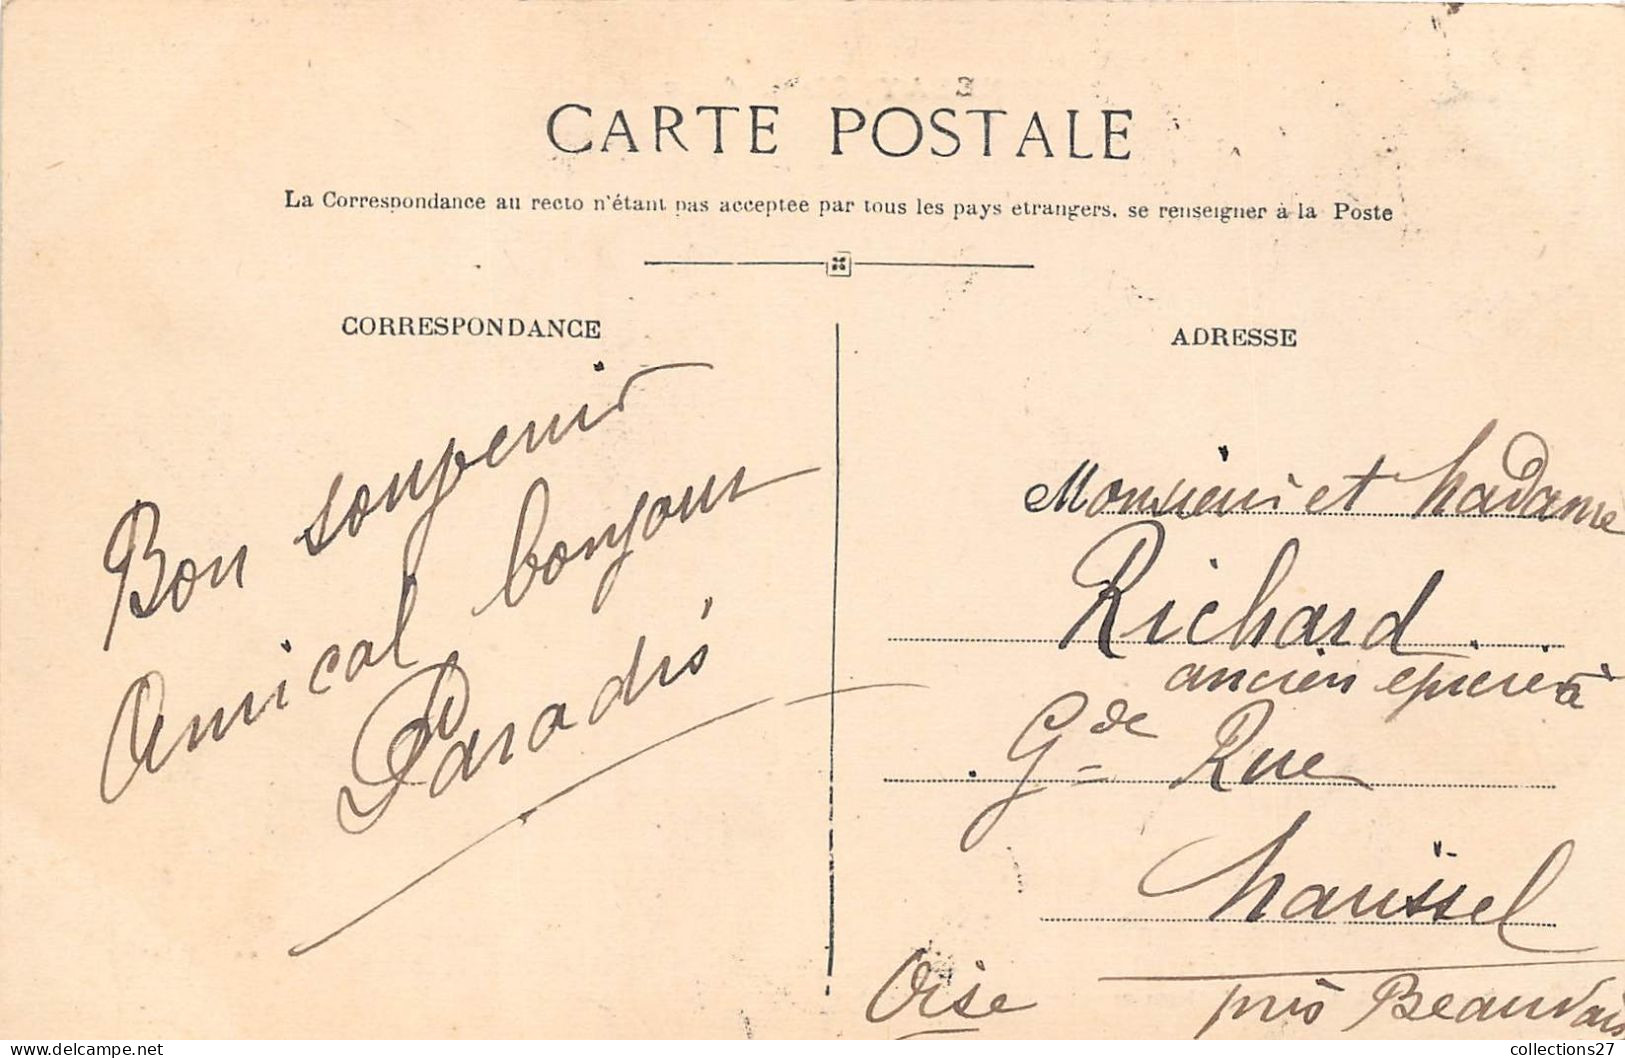 CARTE POSTALE
La Correspondance au recto n'étant pas acceptee par tous les pays etrangers, se renseigner à la Poste
CORRESPONDANCE
ADRESSE
Bon souvenir
Amical bonjour
Paradis
Monsieur et Madame
Richard
ancien epicier à
Gde Rue
Marissel
Oise
près Beauvais
collections27